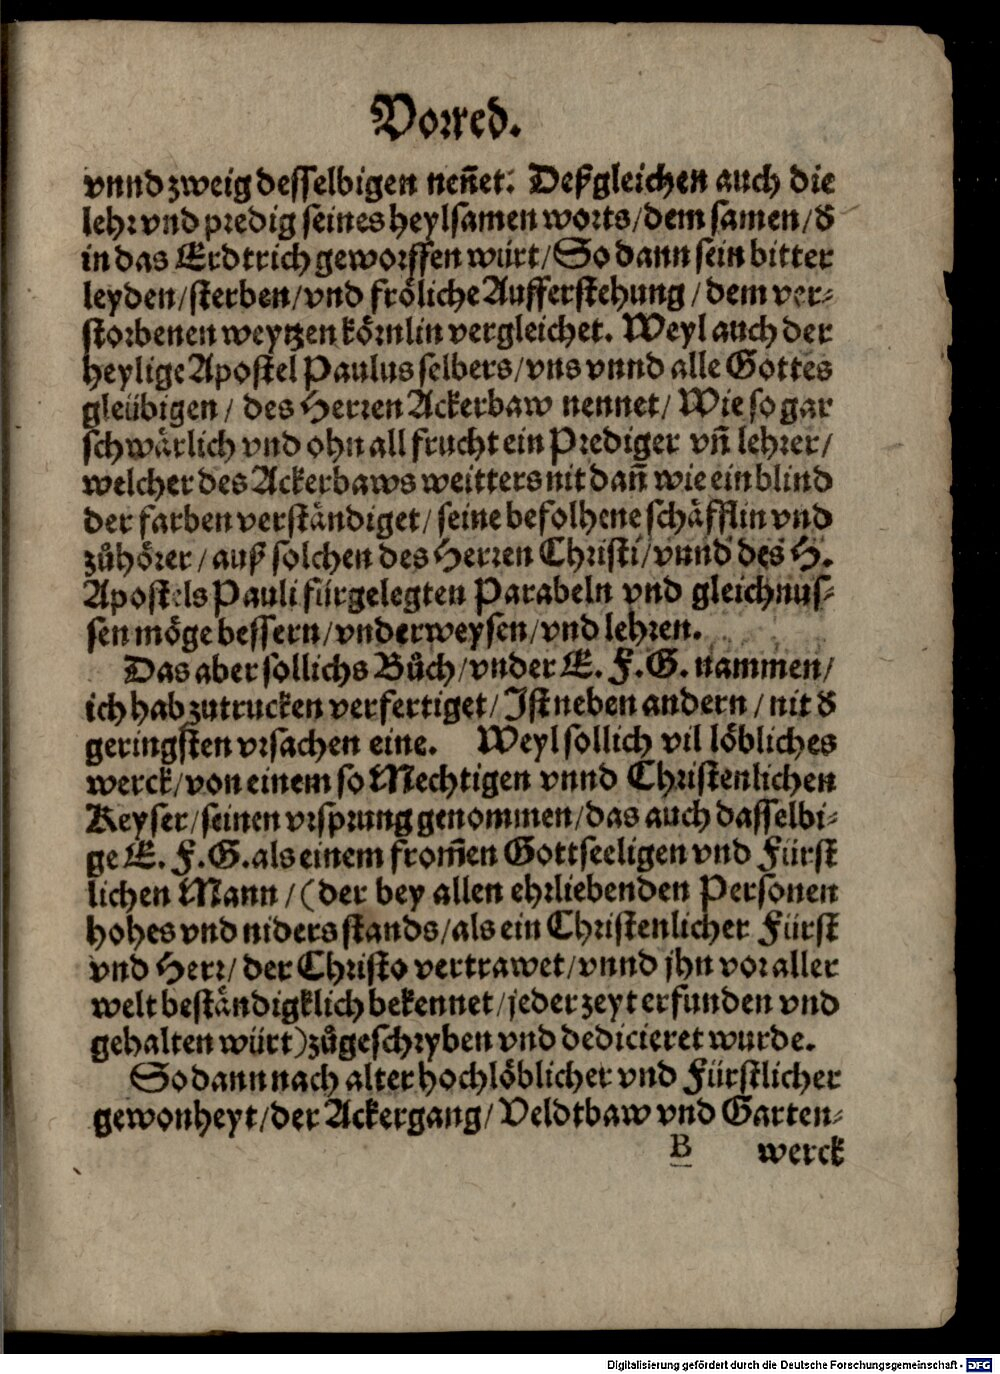 Vorred.
vnnd zweig desselbigen neñet. Deßgleichen auch die
lehr vnd predig seines heylsamen worts/dem samen/d̕
in das Erdtrich geworffen würt/So dann sein bitter
leyden/sterben/vnd fröliche Aufferstehung/dem ver-
storbenen weytzen körnlin vergleichet. Weyl auch der
heylige Apostel Paulus selbers/vns vnnd alle Gottes
gleübigen/ des Herren Ackerbaw nennet/ Wie so gar
schwärlich vnd ohn all frucht ein Prediger vñ lehrer/
welcher des Ackerbaws weitters nit dañ wie ein blind
der farben verständiget/ seine befolhene schäfflin vnd
zůhörer/ auß solchen des Herren Christi/vnnd des H.
Apostels Pauli fürgelegten Parabeln vnd gleichnus-
sen möge bessern/vnderweysen/vnd lehren.
Das aber sollichs Bůch/vnder E. F. G. nammen/
ich hab zutrucken verfertiget/ Ist neben andern/ nit d̕
geringsten vrsachen eine. Weyl sollich vil löbliches
werck/von einem so Mechtigen vnnd Christenlichen
Keyser/seinen vrsprung genommen/das auch dasselbi-
ge E. F. G. als einem from̃en Gottseeligen vnd Fürst
lichen Mann/(der bey allen ehrliebenden Personen
hohes vnd niders stands/als ein Christenlicher Fürst
vnd Herr/ der Christo vertrawet/vnnd jhn vor aller
welt beständigklich bekennet/jederzeyt erfunden vnd
gehalten würt)zůgeschryben vnd dedicieret wurde.
So dann nach alter hochlöblicher vnd Fürstlicher
gewonheyt/der Ackergang/ Veldtbaw vnd Garten-
B werck
Digitalisierung gefördert durch die Deutsche Forschungsgemeinschaft - DFG